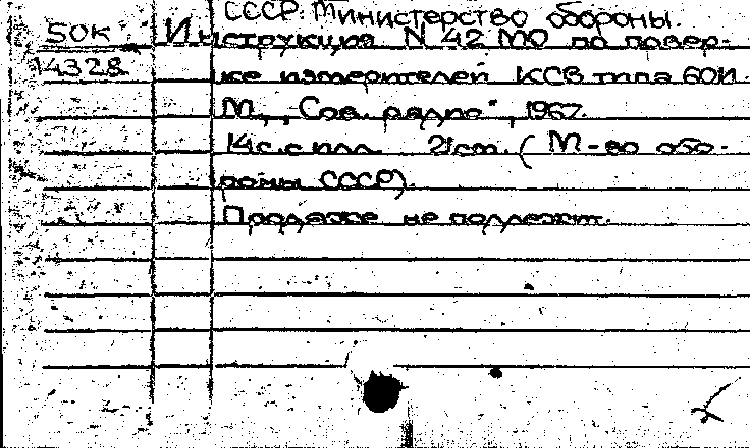 СССР. Министерство обороны.
50к Инструкция N 42 МО по повер-
14328 ке измерителей КСВ типа 60И.
М., „Сов. радио“, 1967.
14с. с илл. 21 см. (М-во обо-
роны СССР).
Продаже не подлежит.